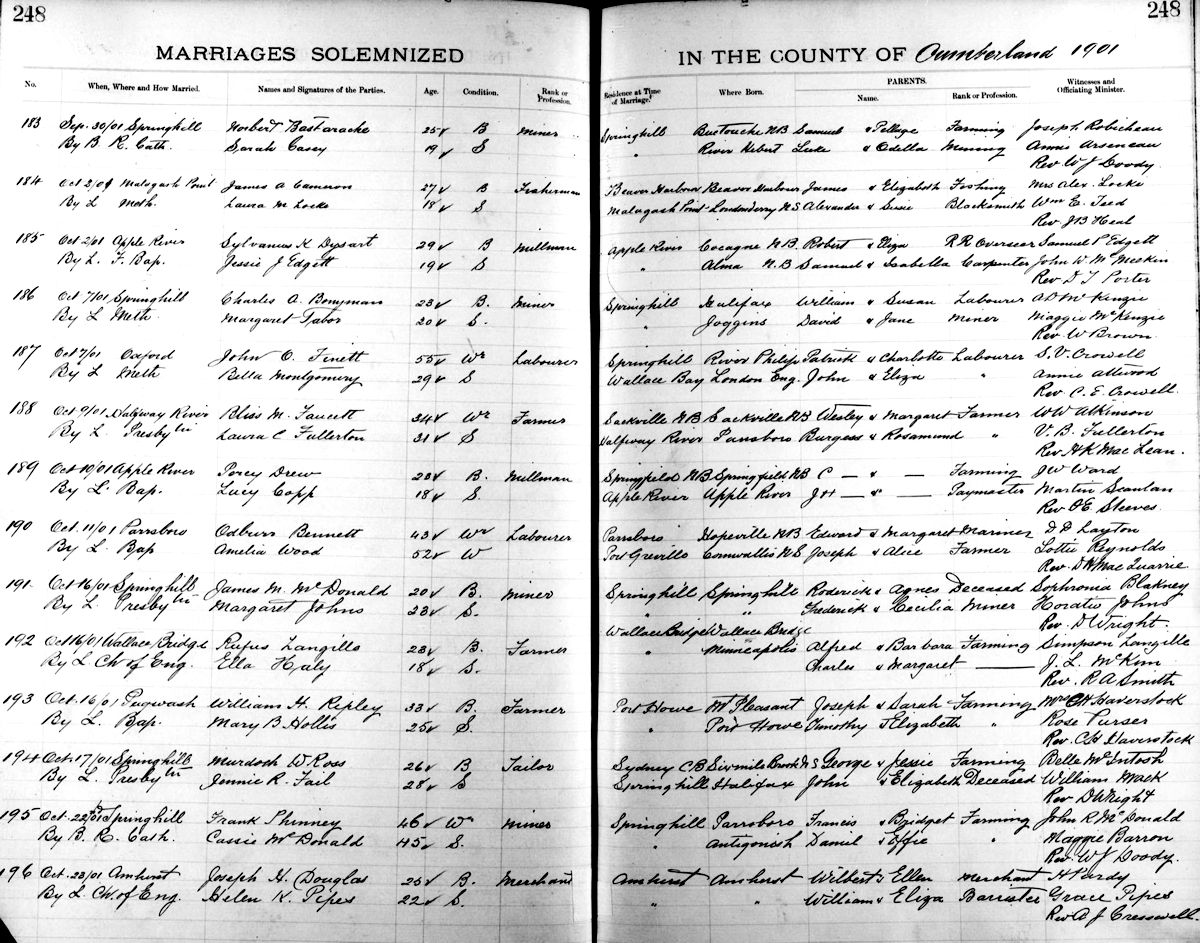 248 248
MARRIAGES SOLEMNIZED IN THE COUNTY OF Cumberland 1901
PARENTS.
No. When, Where and How Married. Names and Signatures of the Parties. Age. Condition. Rank or Profession. Residence at Time of Marriage. Where Born. Name. Rank or Profession. Witnesses and Officiating Minister.
183 Sep. 30/01 Springhill Norbert Bastarache 25 B Miner Springhill Buctouche N B Samuel & Pellage Farming Joseph Robicheau
By B. R. Cath. Sarah Casey 19 S " River Hebert Luke & Odella Mining Annie Arseneau
Rev W J Doody
184 Oct 2/01 Malagash Point James A Cameron 27 B Fisherman Beaver Harbour Beaver Harbour James & Elizabeth Fishing Mrs Alex. Locke
By L Meth. Laura M Locke 18 S Malagash Point Londonderry N S Alexander & Susie Blacksmith Wm E. Teed
Rev J B Heal
185 Oct 2/01 Apple River Sylvanus K Dysart 29 B Millman Apple River Cocagne N B Robert & Eliza R R Overseer Samuel P Edgett
By L. F. Bap. Jessie J Edgett 19 S " Alma N. B Samuel & Isabella Carpenter John W Mc Meekin
Rev D T Porter
186 Oct 7/01 Springhill Charles A. Bonyman 23 B. Miner Springhill Halifax William & Susan Labourer A D Mc Kenzie
By L Meth. Margaret Tabor 20 S. " Joggins David & Jane Miner Maggie Mc Kenzie
Rev. W Brown
187 Oct 7/01 Oxford John C. Finett 55 Wr Labourer Springhill River Philip Patrick & Charlotte Labourer S. V. Crowell
By L Meth Bella Montgomery 29 S Wallace Bay London Eng. John & Eliza " Annie Attwood
Rev. C. E. Crowell.
188 Oct 9/01 Halfway River Bliss M. Faucett 34 Wr Farmer Sackville N B Sackville N B Wesley & Margaret Farmer W W Atkinson
By L. Presbytn Laura C Fullerton 31 S Halfway River Parrsboro Burgess & Rosamund " V. B. Fullerton
Rev H K Mac Lean.
189 Oct 10/01 Apple River Percy Drew 23 B. Millman Springfield N B Springfield N B C — & — Farming J W Ward
By L. Bap. Lucy Copp 18 S. Apple River Apple River J H — & — Paymaster Martin Scanlan
Rev O E Steeves.
190 Oct. 11/01 Parrsboro Odburr Bennett 43 Wr Labourer Parrsboro Hopeville N B Edward & Margaret Mariner D D Layton
By L. Bap Amelia Wood 52 W Port Greville Cornwallis N S Joseph & Alice Farmer Lottie Reynolds
Rev. D H Mac Quarrie
191. Oct 16/01 Springhill James M. Mc Donald 20 B. Miner Springhill Springhill Roderick & Agnes Deceased Sophronia Blakney
By L. Presbytn Margaret Johns 23 S. " " Frederick & Cecilia Miner Horatio Johns
Rev. D Wright.
192 Oct 16/01 Wallace Bridge Rufus Langille 23 B. Farmer Wallace Bridge Wallace Bridge Alfred & Barbara Farming Simpson Langille
By L Ch. of Eng. Ella Haly 18 S. " Minneapolis Charles & Margaret — J. L. Mc Kim
Rev. R A Smith
193 Oct. 16/01 Pugwash William H. Ripley 33 B. Farmer Port Howe Mt Pleasant Joseph & Sarah Farming Mrs C H Haverstock
By L. Bap. Mary B Hollis 25 S. " Port Howe Timothy & Elizabeth " Rose Purser
Rev. C H Haverstock
194 Oct. 17/01 Springhill Murdoch W Ross 26 B Tailor Sydney C B Six mile Brook N S George & Jessie Farming Belle Mc Intosh
By L. Presbytn Jennie R. Fail 28 S Springhill Halifax John & Elizabeth Deceased William Mack
Rev D Wright
195 Oct. 22/01 Springhill Frank Phinney 46 Wr Miner Springhill Parrsboro Francis & Bridget Farming John R Mc Donald
By B. R. Cath. Cassie Mc Donald 45 S. " Antigonish Daniel & Effie " Maggie Barron
Rev. W J Doody.
196 Oct. 23/01 Amherst Joseph H. Douglas 25 B. Merchant Amherst Amherst Wilbert & Ellen Merchant H Purdy
By L. Ch. of Eng. Helen K. Pipes 22 S. " " William & Eliza Barrister Grace Pipes
Rev A J Cresswell.